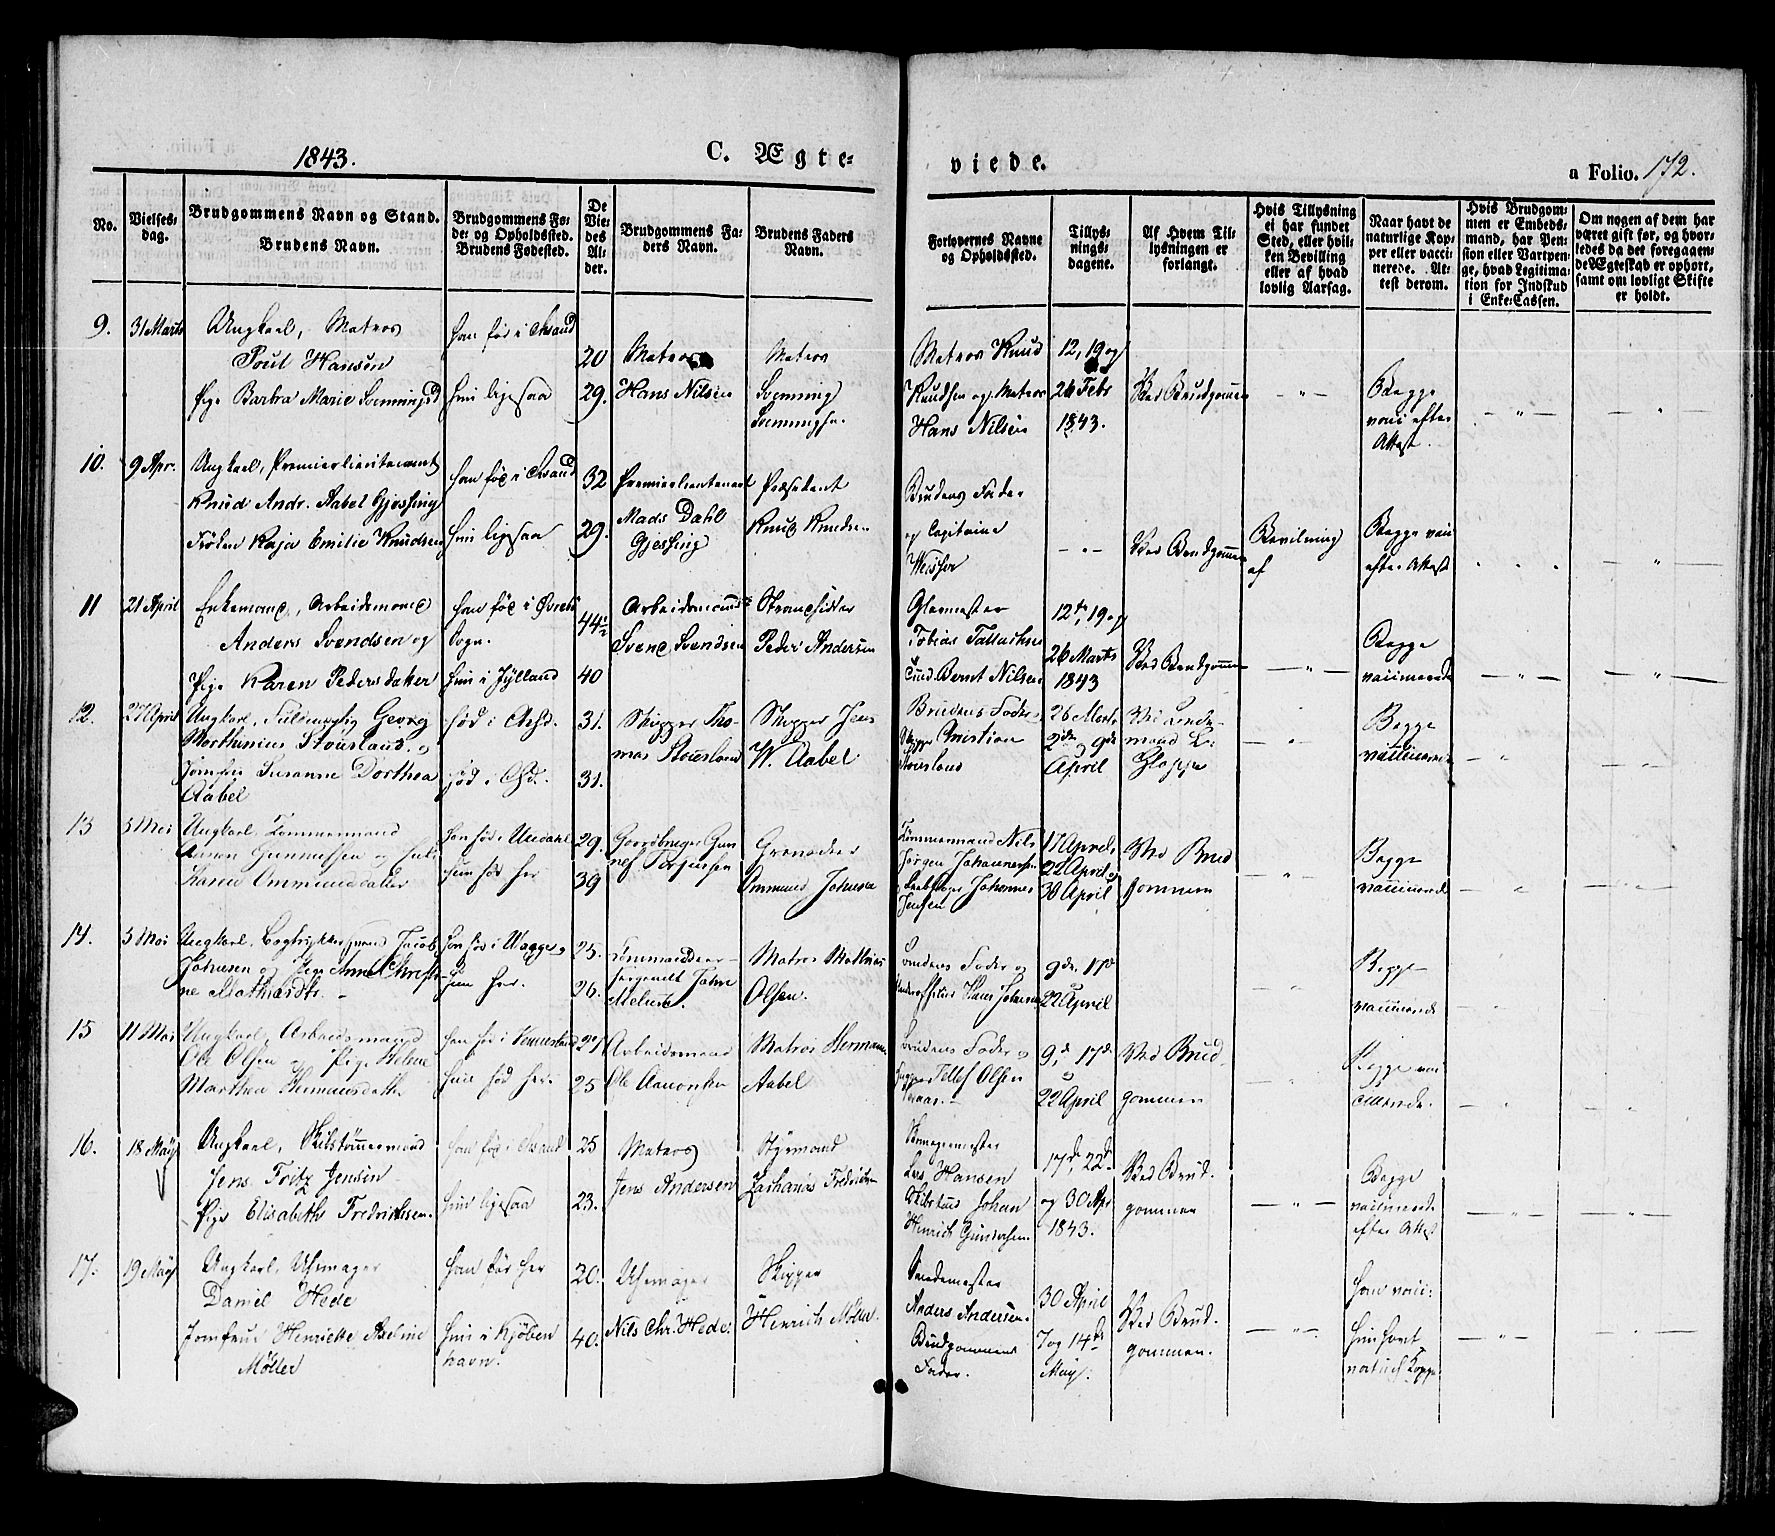 1843.
C. Ægte-
viede.
a Folio. 172.
No.
Vielses-
dag.
Brudgommens Navn og Stand.
Brudens Navn.
Brudgommens Fø-
de- og Opholdssted.
Brudens Fødested.
De
Vie-
des
Al-
der.
Brudgommens Fa-
ders Navn.
Brudens Faders
Navn.
Forlovernes Navne
og Opholdssted.
Tillys-
nings-
dagene.
Af Hvem Til-
lysningen er
forlangt.
Hvis Tillysning
ei har fundet
Sted, eller hvil-
ken Bevilling
eller af hvad
lovlig Aarsag.
Naar havt de
naturlige Kop-
per eller vacci-
nerede. At-
test derom.
Hvis Brudgom-
men er Embeds-
mand, har Pen-
sion eller Vartpen-
ge, hvad Legitima-
tion for Indskud
i Enke-Cassen.
Om nogen af dem har
været gift før, og hvor-
ledes da det foregaaen-
de Ægteskab er ophørt,
samt om lovligt Skifte
er holdt.
9. 31 Marts
Ungkarl, Matros
Poul Hansen
Pige Barbra Marie Svenningsd
han fød i Chrsand
hun ligesaa
20
29.
Matros
Hans Nilsen
Matros
Svenning
Svenningsen
Matros Knud
Knudsen og Matros
Hans Nilsen
12, 19 og
26 Febr
1843.
Ved Brudgommen
Begge
vacc efter
Attest.
10. 9 Apr.
Ungkarl, Premierlieutenant
Knud Andr. Aabel Gjessing
Frøken Kaja Emilie Knudsen
han fød i Chrsand
hun ligesaa
32
29.
Premierlieutenant
Mads Dahl
Gjessing
Præsident
Knud Knudsen
Brudens Fader
og Capitaine
Ved Brudgommen
Bevilning
af
Begge vacc
efter Attest
11 21 April
Enkemand, Arbeidsmand
Anders Svendsen og
Pige Karen Pedersdatter
han fød i
Sogn.
hun i Jylland
44½
40
Arbeidsmand
Svend Svendsen
Strandsidder
Peder Andersen
Glarmester
Tobias Tallachsen
Bernt Nilsen
12te, 19 og
26 Marts
1843
Ved Brudgommen
Begge
vaccinerede
12. 27 April
Ungkarl, Fuldmægtig Georg
Morthinius Stousland og
Jomfru Susanne Dorthea
Aabel
fød i Chsd.
fød i Chsd.
31.
31.
Skipper Tho-
mas Stousland
Skipper Jens
W. Aabel
Brudens Fader
Christian
Stousland
26 Marts,
2den og 9de
April
Begge
vaccinerede
13 5 Mai
Ungkarl, Tømmermand
Gunnufsen og
Karen Ommundsdatter
han fød i
hun fød her
29.
39
Gaardbruger Gun
Grenadeer
Ommund Johnsen
Tømmermand Nils
Jørgen Johannesen
Johannes
Jensen
17 April,
22 April og
30 April
Ved Brud
gommen
Begge
vaccinerede
14. 5 Mai
Ungkarl, Jacob
Johnsen og Pige Anne Christi
ne Mathiasdtr.
hun her.
25.
26.
Matros Mathias
Olsen.
Brudens Fader og
Hans Johnsen
9de, 17de
22 April
Begge
vaccinerede
15 11 Mai
Ungkarl, Arbeidsmand
Ole Olsen og Pige Helene
Marthea Hermansdatter
han fød i Vennesland
hun fød her.
27
25
Arbeidsmand
Ole Aanonsen
Matros Herman
Aabel
Brudens Fader og
Tellef Olsen
9de, 17de
22 April
Ved Brud
gommen
Begge vac
cinerede.
16. 18 May
Ungkarl, Skibstømmermand
Jens Fritz Jensen
Pige Elisabeth Fredrichsen.
han fød i Chrsand
hun ligesaa
25
23.
Matros
Jens Andersen
Styrmand
Zacharias Fredriksen
Skomagermester
Lars Hansen
Johan
Henrich Gundersen
17de, 22de
og 30 Apr
1843.
Ved Brud.
gommen
Begge
vaccinerede
efter Attest
17. 19 May
Ungkarl, Uhrmager
Daniel Hede
Jomfrue Henriette Axeline
Møller
han fød her
hun i Kjøben
havn.
20.
40.
Uhrmager
Nils Chr. Hede.
Skipper
Henrich Møller.
Anders Andersen.
Brudgommens
Fader.
30 April
7 og 14de
May.
Ved Brud.
gommen.
han vacc.
hun havt
naturl. Kopper